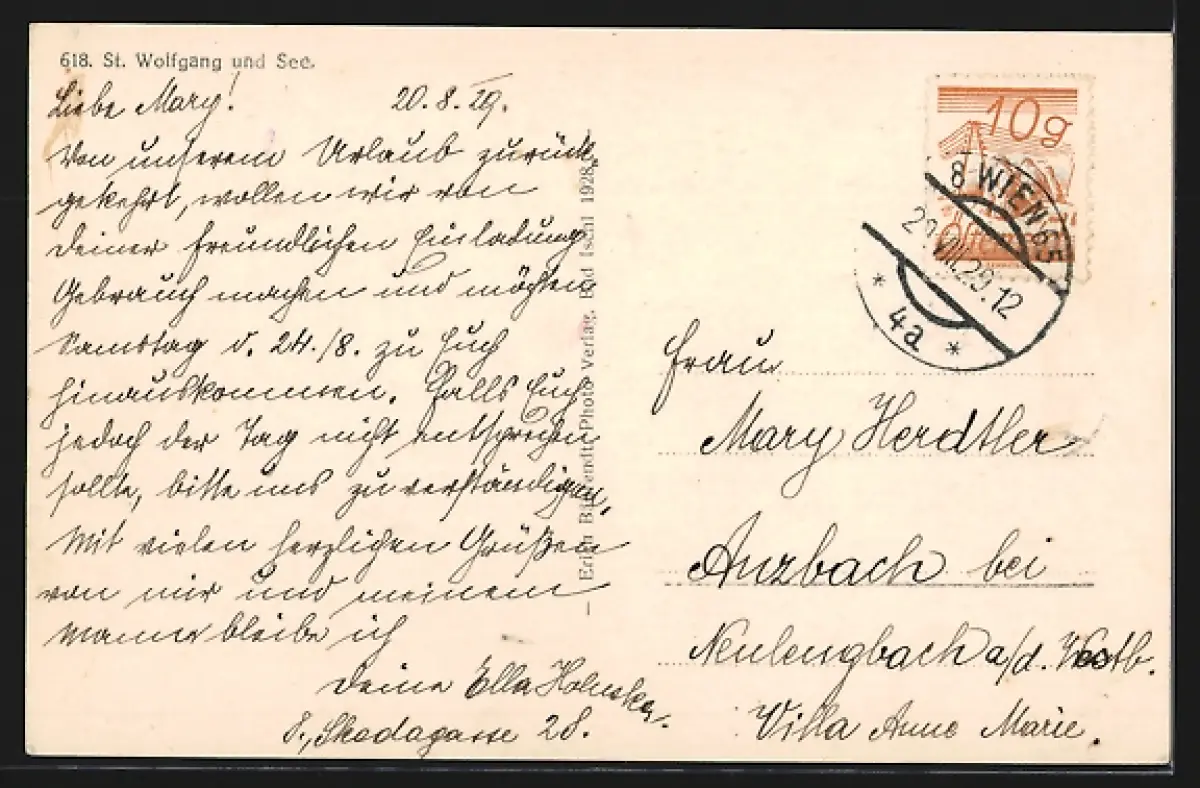 618. St. Wolfgang und See.
Liebe Mary! 20.8.29.
Von unserem Urlaub zurück-
gekehrt, wollen wir von
Deiner freundlichen Einladung
Gebrauch machen und möchten
Samstag d. 24./8. zu Euch
hinauskommen. Falls Euch
jedoch der Tag nicht entsprechen
sollte, bitte uns zu verständigen.
Mit vielen herzlichen Grüßen
von mir und meinem
Manne bleibe ich
Deine Ella
8., Skodagasse 28.
— Erich Photo Verlag, Bad Ischl 1928
10g
8 WIEN 65
VIII.29.12
* 4a *
Frau
Mary Herdtler
Anzbach bei
Neulengbach a/d. Westb.
Villa Anne Marie.